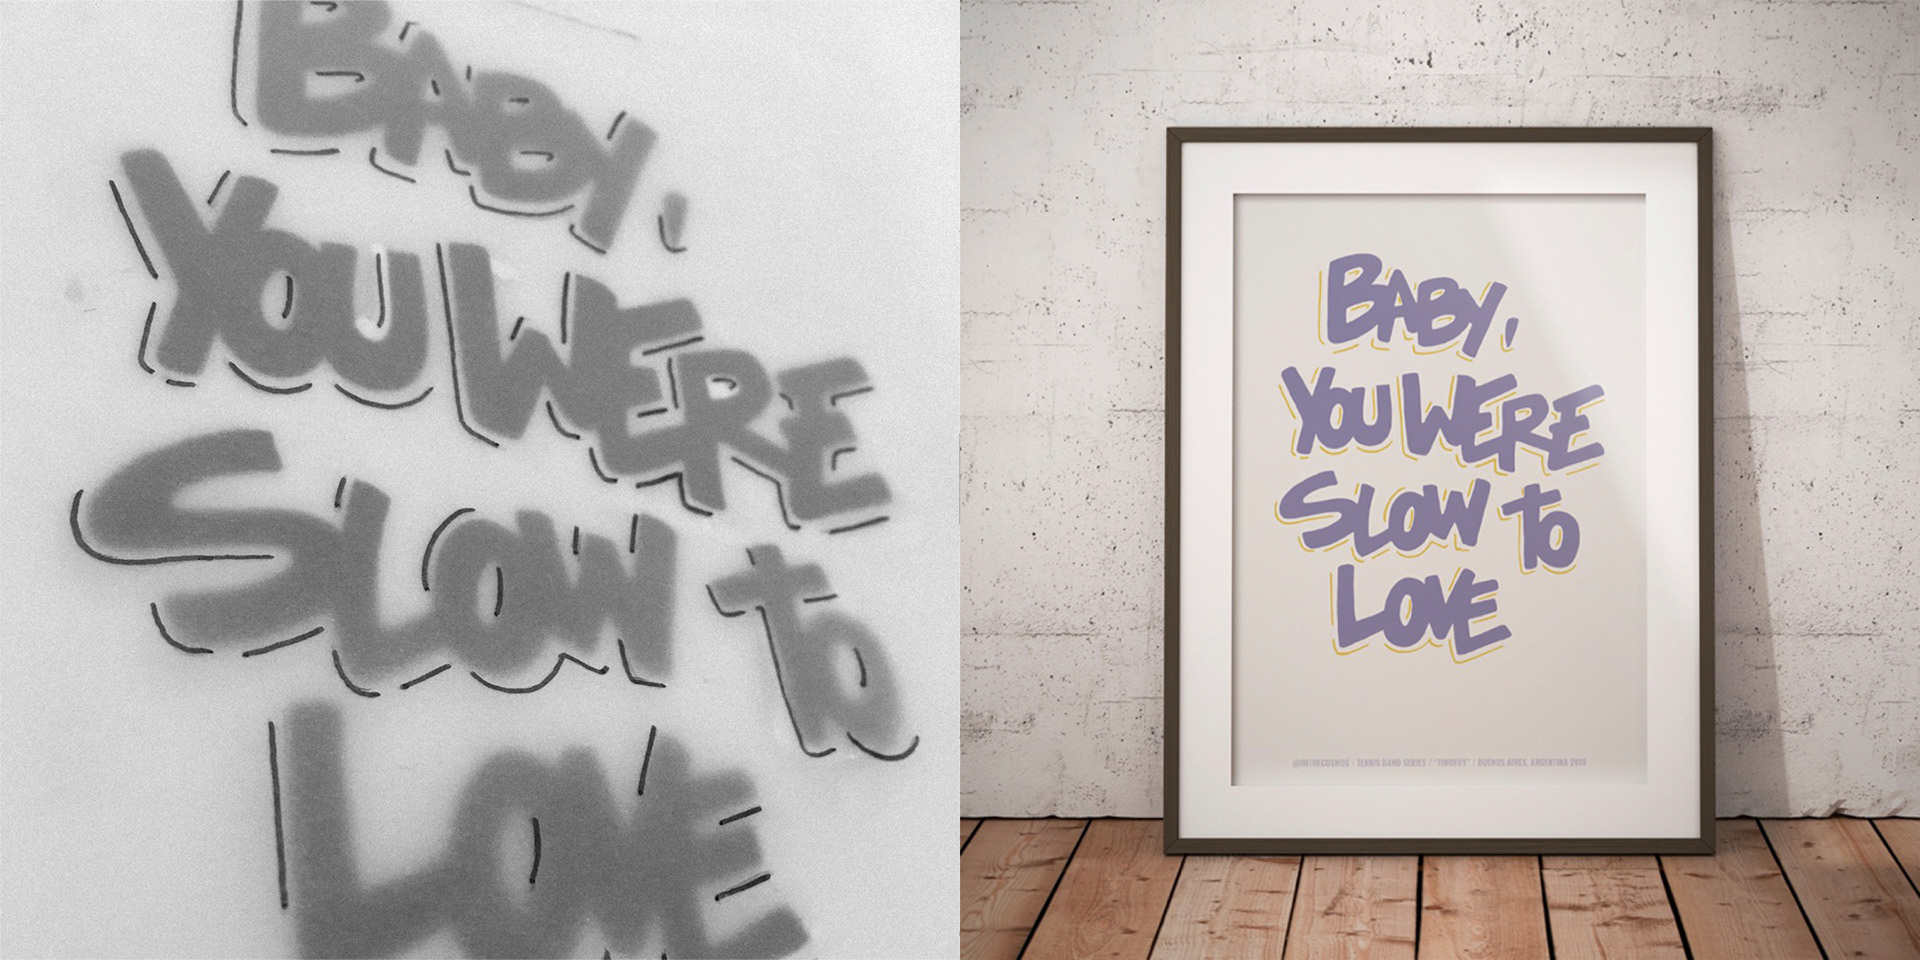 BABY,
YOU WERE
SLOW TO
LOVE
BABY,
YOU WERE
SLOW TO
LOVE
@INTHECOSMOS / TENNIS BAND SERIES / "TIMOTHY" / BUENOS AIRES, ARGENTINA 2018